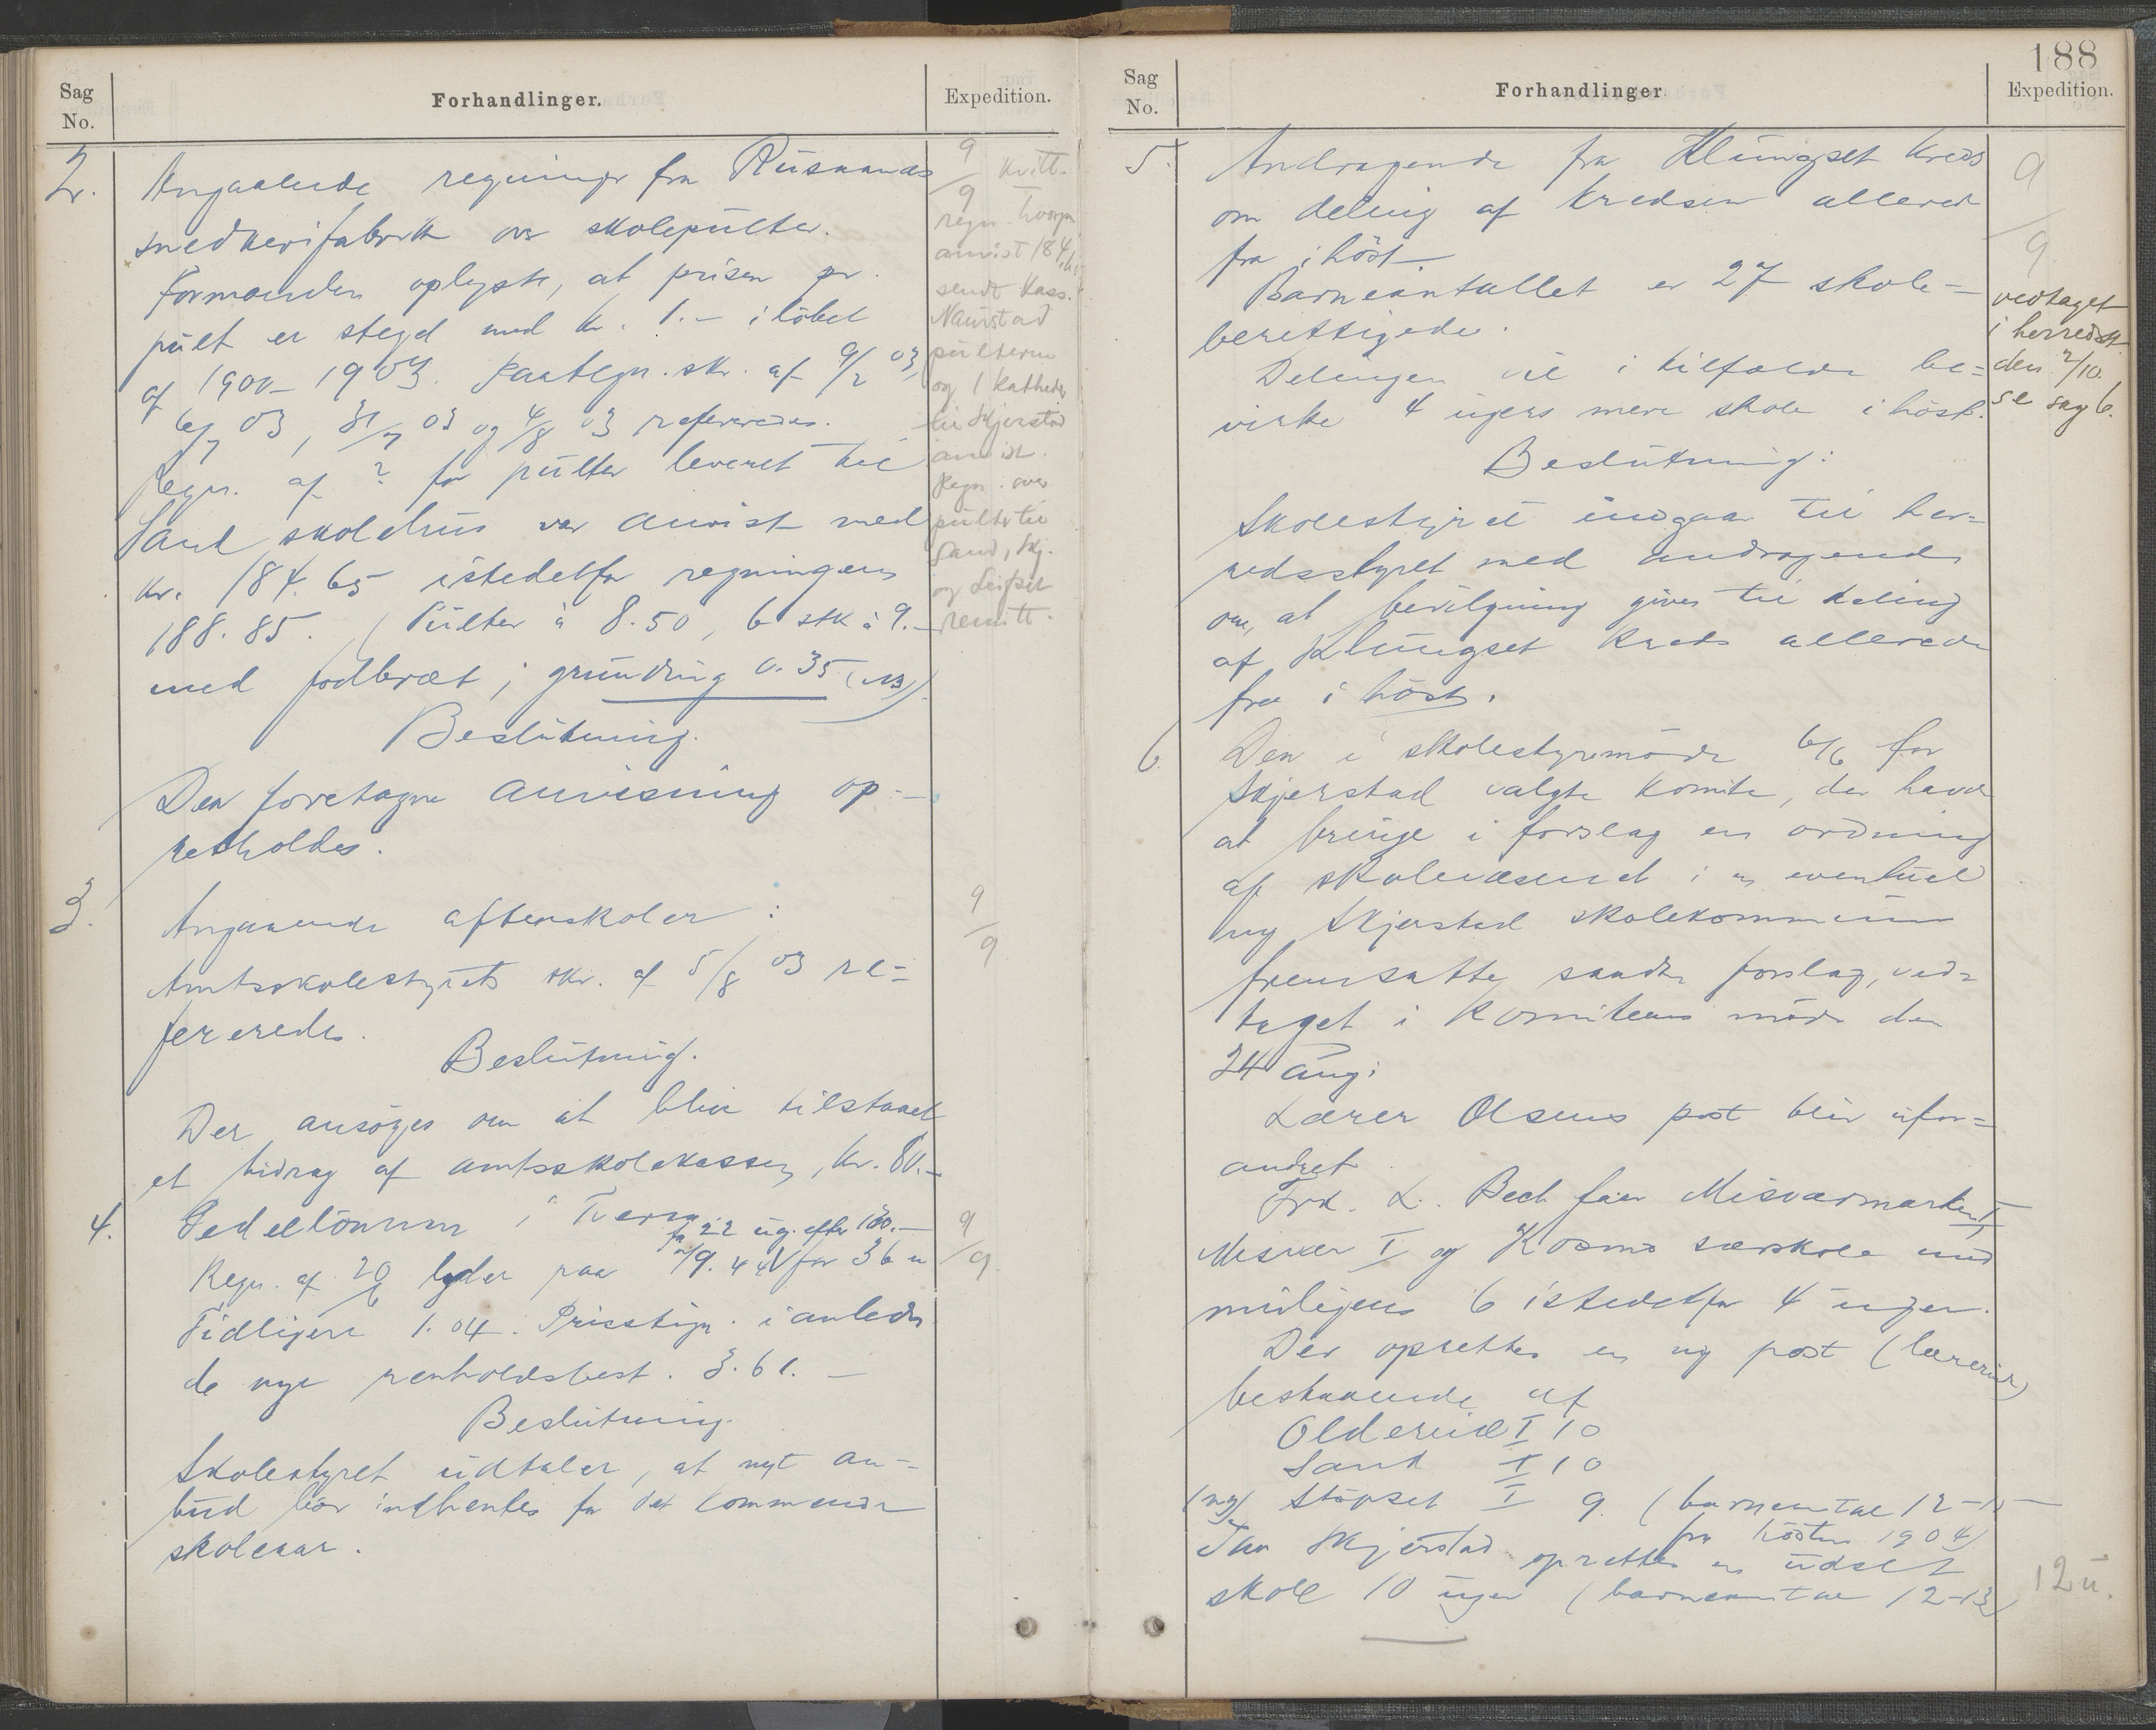 Sag
No.
Forhandlinger.
Expedition.
2.
Angaaende regninger fra Rusaanes
snedkerifabrik over skolepulter.
Formanden oplyste, at prisen pr.
pult er steget med kr. 1.- i löbet
af 1900-1903. Paategn. skr. af 9/2 03,
6/7 03, 31/7 03 og 4/8 03 refereredes.
Regn. af ? for pulter leveret til
Sand skolehus var anvist med
kr. 184.65 istedetfor regningens
188.85. (Pulter à 8.50, 6 stk à 9.-
med fodbræt; grunding 0.35 (NB)).
Beslutning.
Den foretagne anvisning op-
retholdes.
9/9 kvitt.
regn. hvorpaa
anvist 184,65
sendt kass.
Naurstad
pulterne
og 1 katheder
til Skjerstad
anvist.
Regn. over
pulter til
Sand, Skj.
og Leifset
remitt.
3.
Angaaende aftenskoler:
Amtsskolestyrets skr. af 5/8 03 re=
fereredes.
Beslutning.
Der ansöges om at blive tilstaaet
et bidrag af amtsskolekassen, kr. 80.-
9/9
4.
Pedellönnen i
for 22 ug. efter 100.-
Regn. af 20/6 lyder paa 19.44 for 36 u
Tidligere 1.04. Prisstign. i anledn
de nye renholdsbest. 3.61.-
Beslutning.
Skolestyret udtaler, at nyt an-
bud bör indhentes for det kommende
skoleaar.
9/9
188
Sag
No.
Forhandlinger
Expedition.
5.
Andragende fra Klungset kreds
om deling af kredsen allerede
fra ihöst.
Barneantallet er 27 skole-
berettigede.
Delingen vil i tilfælde be=
virke 4 ugers mere skole i höst.
Beslutning:
Skolestyret indgaar til her=
redsstyret med andragende
om, at bevilgning gives til deling
af Klungset kreds allerede
fra i höst.
9/9
vedtaget
i herredsst.
den 2/10.
se sag 6.
6.
Den i skolestyremöde 6/6 for
Skjerstad valgte komite, der havde
at bringe i forslag en ordning
af skolevæsenet i en eventuel
ny Skjerstad skolekommune
fremsatte saadan forslag, ved=
taget i komiteens möde den
24 aug:
Lærer Olsens post blir ufor=
andret
Frk. L. Bech faar Misværmarken I,
Misvær I og Kosmo særskole med
muligens 6 istedetfor 4 uger.
Der oprettes en ny post (lærerinde)
bestaaende af
Oldereid I 10
Sand I 10
(ny) Støvset I 9. (barneantal 12-15
fra hösten 1904)
Skjerstad oprettes en udset
skole 10 uger (barneantal 12-13)
12 u.